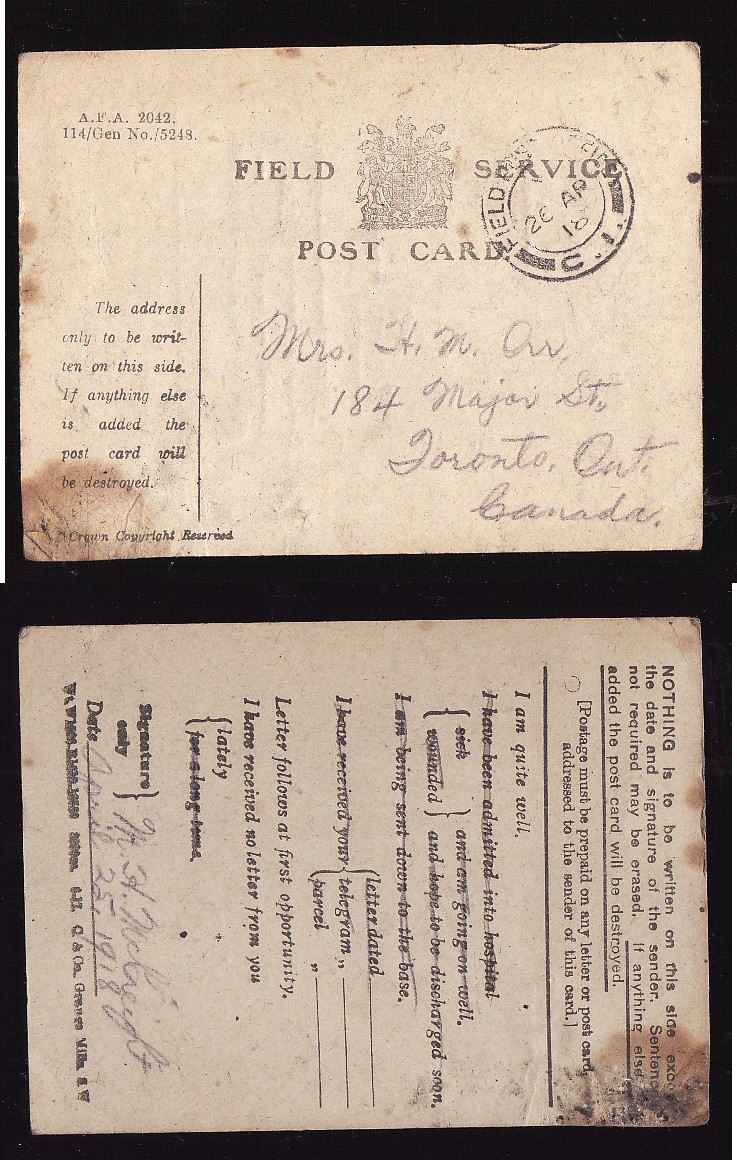 A.F.A. 2042.
114/Gen No./5248.
FIELD SERVICE
POST CARD
FIELD POST OFFICE
26 AP
18
C.1.
The address
only to be writ-
ten on this side.
If anything else
is added the
post card will
be destroyed.
Crown Copyright Reserved
Mrs. H. M. Orr,
184 Major St.,
Toronto, Ont.
Canada.
NOTHING is to be written on this side exc
the date and signature of the sender. Sentenc
not required may be erased. If anything else
added the post card will be destroyed.
[Postage must be prepaid on any letter or post card
addressed to the sender of this card.]
I am quite well.
I have been admitted into hospital
sick and am going on well.
wounded and hope to be discharged soon.
I am being sent down to the base.
I have received your
letter dated
telegram ,,
parcel ,,
Letter follows at first opportunity.
I have received no letter from you
lately
for a long time.
Signature
only
M. H.
Date April 25, 1918
Q. & Co. Grange Mills, S.W